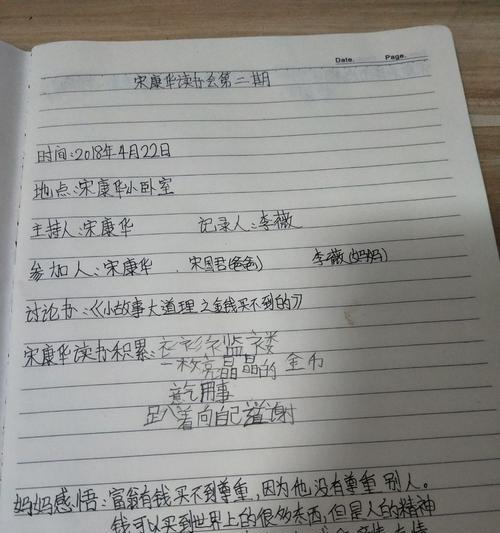 Date.    Page.
宋康华读书会第二期
时间:2018年4月22日
地点:宋康华小卧室
主持人:宋康华    记录人:李薇
参加人:宋康华    宋国君(爸爸)    李薇(妈妈)
讨论书:《小故事大道理之金钱买不到的》
宋康华读书积累:衣衫褴褛
一枚亮晶晶的金币
意气用事
趴着向自己道谢
妈妈感悟:富翁有钱买不到尊重,因为他没有尊重别人。
钱可以买到世界上的很多东西,但是人的精神